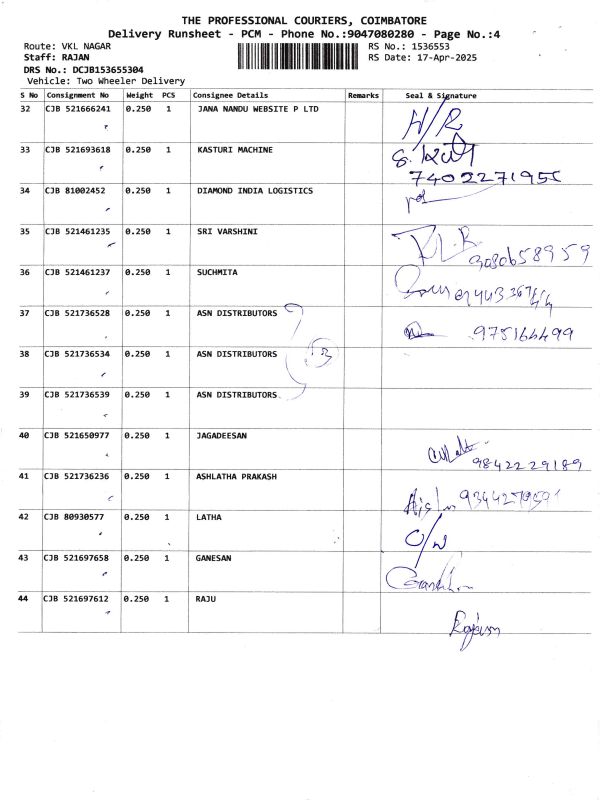 THE PROFESSIONAL COURIERS, COIMBATORE
Delivery Runsheet - PCM - Phone No.:9047080280 - Page No.:4
Route: VKL NAGAR RS No.: 1536553
Staff: RAJAN RS Date: 17-Apr-2025
DRS No.: DCJB153655304
Vehicle: Two Wheeler Delivery
S No Consignment No Weight PCS Consignee Details Remarks Seal & Signature
32 CJB 521666241 0.250 1 JANA NANDU WEBSITE P LTD H/R
33 CJB 521693618 0.250 1 KASTURI MACHINE
7402271955
34 CJB 81002452 0.250 1 DIAMOND INDIA LOGISTICS
35 CJB 521461235 0.250 1 SRI VARSHINI
36 CJB 521461237 0.250 1 SUCHMITA
37 CJB 521736528 0.250 1 ASN DISTRIBUTORS
38 CJB 521736534 0.250 1 ASN DISTRIBUTORS
39 CJB 521736539 0.250 1 ASN DISTRIBUTORS
40 CJB 521650977 0.250 1 JAGADEESAN 9842229189
41 CJB 521736236 0.250 1 ASHLATHA PRAKASH
42 CJB 80930577 0.250 1 LATHA O/W
43 CJB 521697658 0.250 1 GANESAN
44 CJB 521697612 0.250 1 RAJU